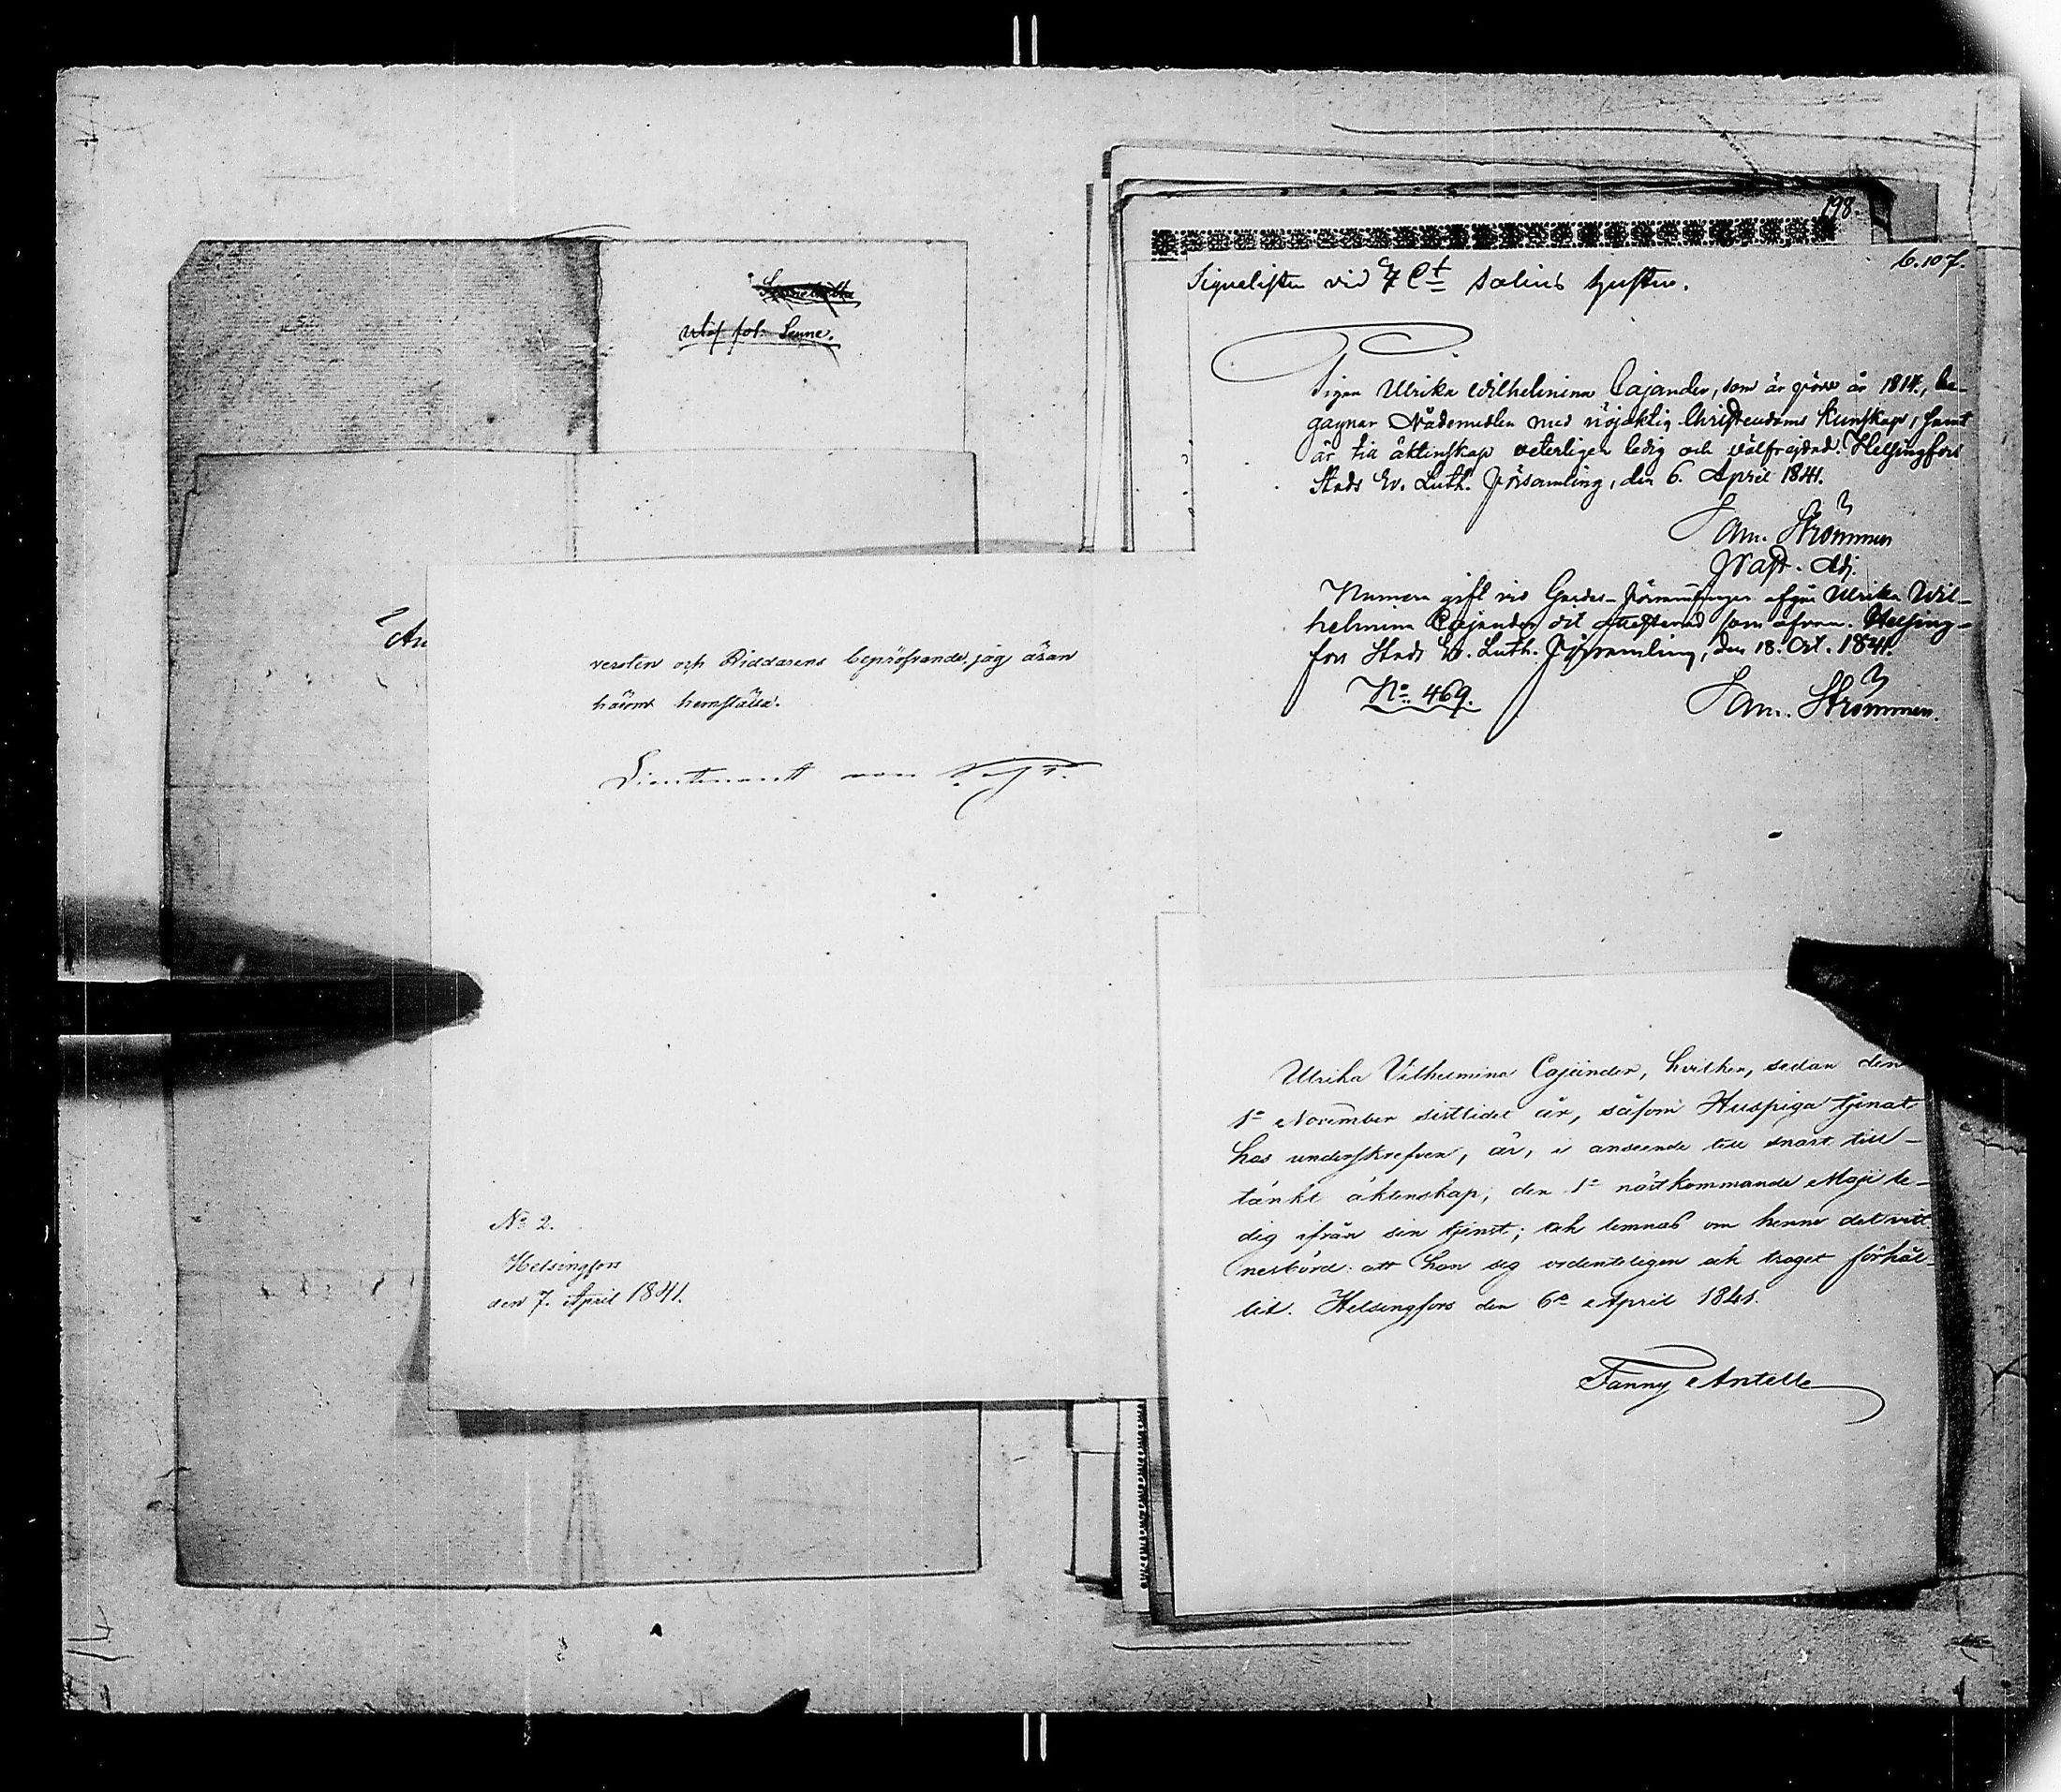 utaf
versten och Riddarens bepröfvande jag äran
härom hemställa.
Lieutenant von
No 2.
Helsingfors
den 7. April 1841.
198.
6.107.
vid
Pigan Ulrika Wilhelmina Cajander, som är född år 1817, be-
gagnar Nådemedlen med nöjaktig Christendoms kunskap, samt
är till äktenskap veterligen ledig och välfrejdad. Helsingfors
Stads Ev. Luth. Församling, den 6. April 1841.
Sam. Strömmer
Past. Adj.
Numera gift vid Gardes-Församlingen afgår Ulrika Wil-
helmina Cajander dit attesterad som ofvan. Helsing-
fors Stads Ev. Luth. Församling, den 18. Oct. 1841.
No. 469.
Sam. Strömmer.
Ulrika Vilhelmina Cajander, hvilken, sedan den
1a November sistlidet år, såsom Huspiga tjenat
hos underskrefven, är, i anseende till snart till-
tänkt äktenskap, den 1a nästkommande Maji le-
dig ifrån sin tjenst; och lemnas om henne det vitt-
nesbörd: att hon sig ordenteligen och troget förhål-
lit. Helsingfors den 6e April 1841.
Fanny Antell